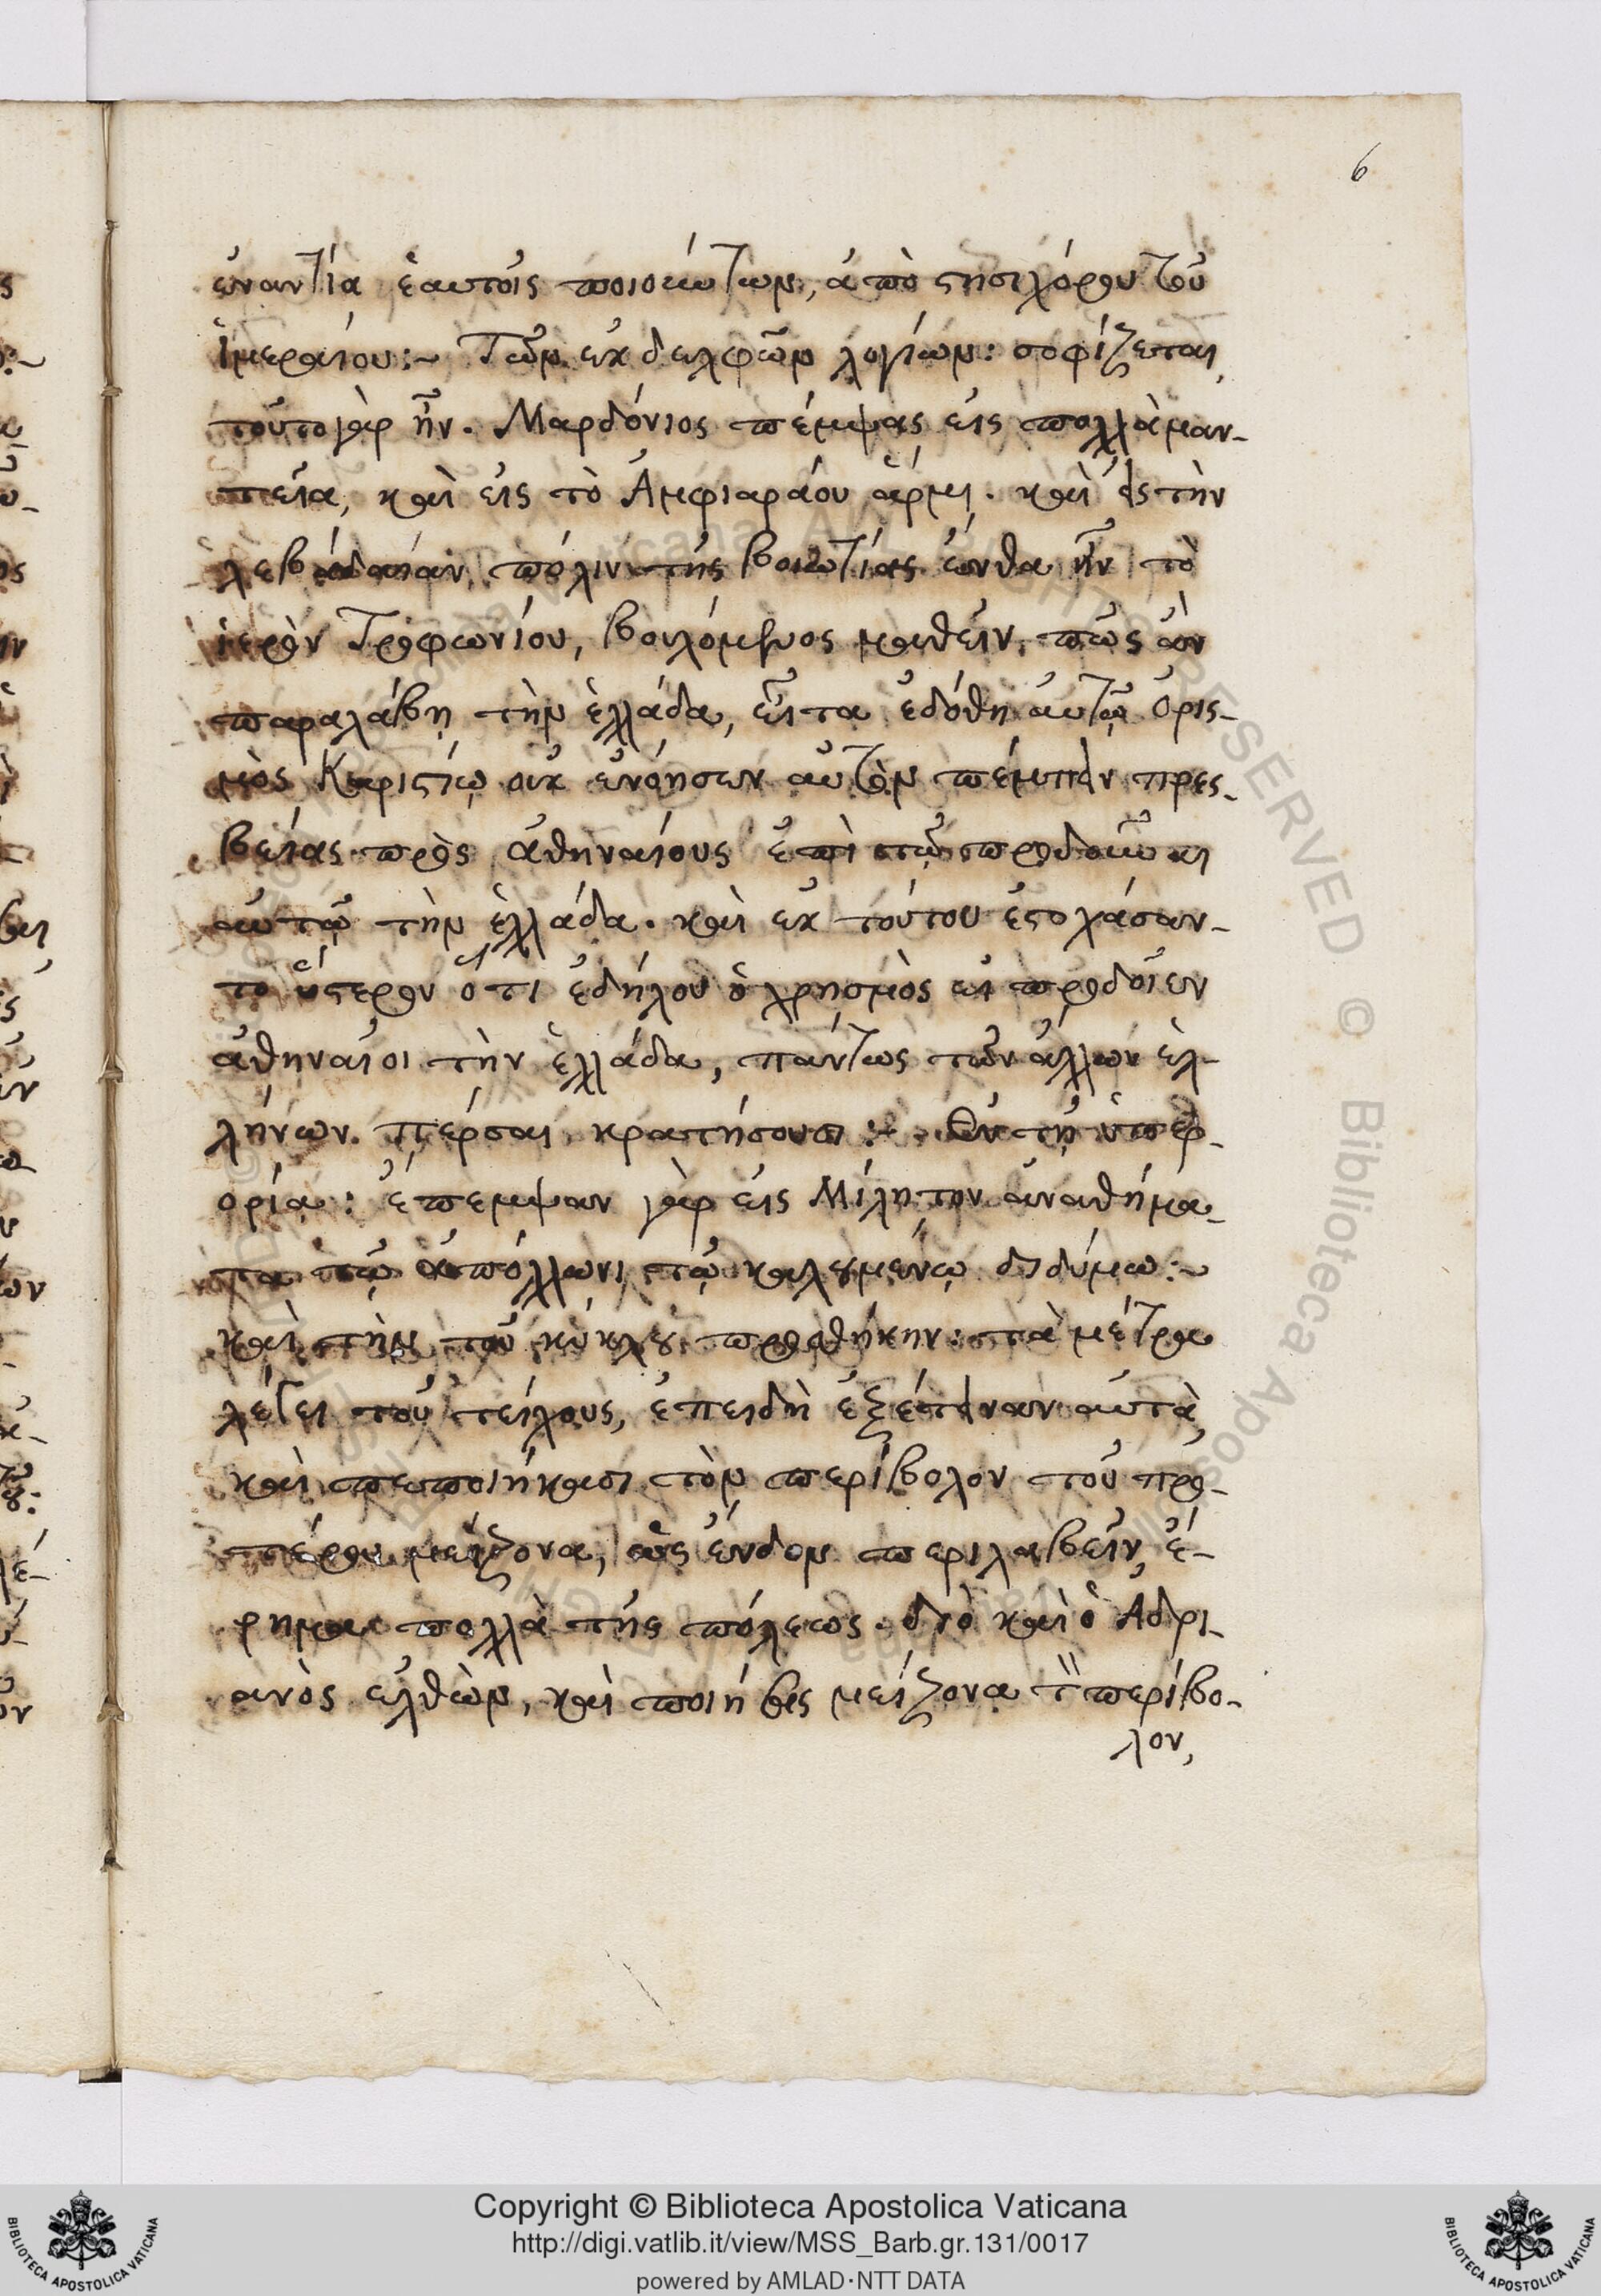 6
ἐναντία ἑαυτοῖς ποιούντων, ἀπὸ στησιχόρου τοῦ
ἱμεραίου:~ Τῶν ἐκ δελφῶν λογίων: σοφίζεται
τοῦτο γὰρ ἦν. Μαρδόνιος πέμψας εἰς πολλὰ μαν-
τεῖα, καὶ εἰς τὸ Ἀμφιαράου ἅρμα. καὶ εἰς τὴν
λεβάδαιαν, πόλιν τῆς βοιωτίας ἔνθα ἦν τὸ
ἱερὸν Τροφωνίου, βουλόμενος μαθεῖν, πῶς ἂν
παραλάβῃ τὴν ἑλλάδα, εἶτα ἐδόθη αὐτῷ ὁρισ-
μὸς Καριστίῳ οὐκ ἐνόησεν αὐτὸν πέμπειν πρεσ-
βείας πρὸς ἀθηναίους ἐπὶ τῷ προδοῦναι
αὐτῷ τὴν ἑλλάδα. καὶ ἐκ τούτου ἐστοχάσαν-
το ὕστερον ὅτι ἐδήλου ὁ χρησμὸς εἰ προδοῖεν
ἀθηναῖοι τὴν ἑλλάδα, πάντως τῶν ἄλλων ἑλ-
λήνων πέρσαι κρατήσουσι:~ Ἐν τῇ ὑπερ-
ορίᾳ: ἔπεμψαν γὰρ εἰς Μίλητον ἀναθήμα-
τα τῷ ἀπόλλωνι τῷ καλουμένῳ διδύμῳ:~
καὶ τὴν τοῦ κύκλου προσθήκην: τὰ μέτρα
λέγει τοῦ τείχους, ἐπειδὴ ἐξέτειναν αὐτὰ,
καὶ πεποιήκασι τὸν περίβολον τοῦ προ-
τέρου μείζονα, ὡς ἔνδον περιλαβεῖν ἔ-
ρημα πολλὰ τῆς πόλεως. διὸ καὶ ὁ Ἀδρι-
ανὸς ἐλθὼν, καὶ ποιήσας μείζονα τὸν περίβο-
λον,
Copyright © Biblioteca Apostolica Vaticana
http://digi.vatlib.it/view/MSS_Barb.gr.131/0017
powered by AMLAD·NTT DATA
BIBLIOTECA APOSTOLICA VATICANA
BIBLIOTECA APOSTOLICA VATICANA